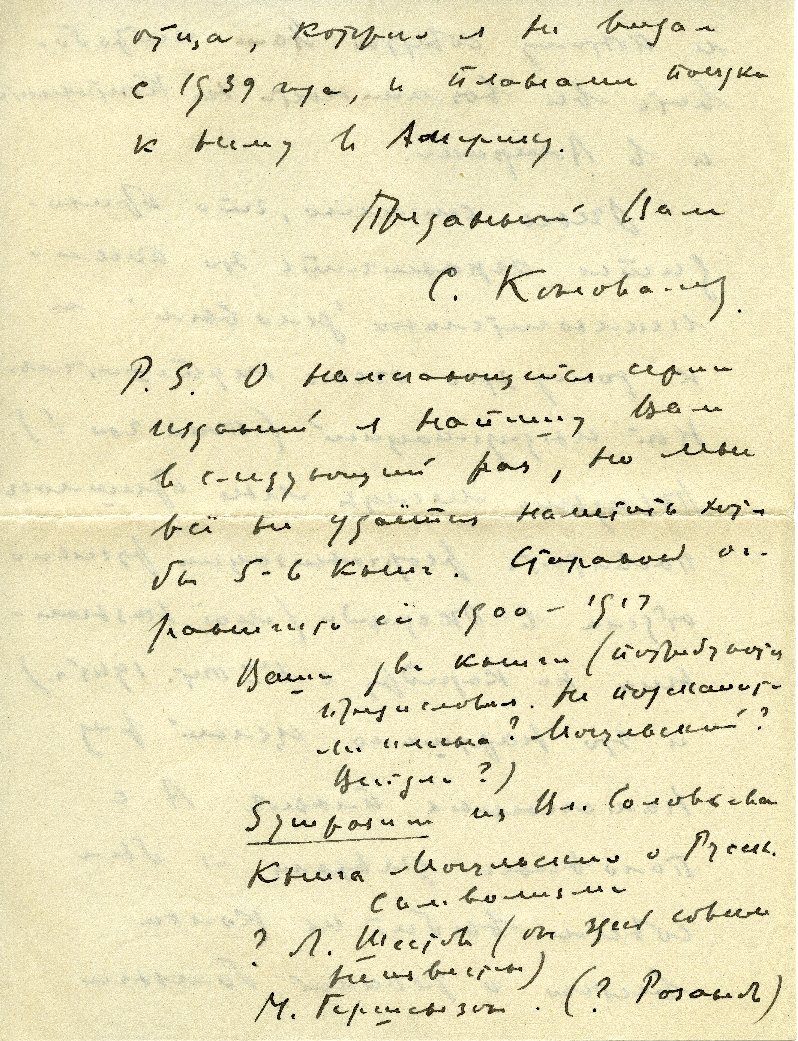 отца, которого я не видал
с 1939 года, и планами поездки
к нему в Америку.
Преданный Вам
С. Коновалов.
P. S. О намечающейся серии
изданий я напишу Вам
в следующий раз, но мне
всё не удаётся наметить хотя
бы 5-6 книг. Стараюсь ог-
раничить её 1900 – 1917
Ваши две книги (потребуются
предисловия. Не пожелаете
ли Ильина? Мочульский?
Вейдле?)
Symposium из Вл. Соловьева
Книга Мочульского о Русск.
Символизме
? Л. Шестов (он здесь совсем
неизвестен)
М. Гершензон. (? Розанов)